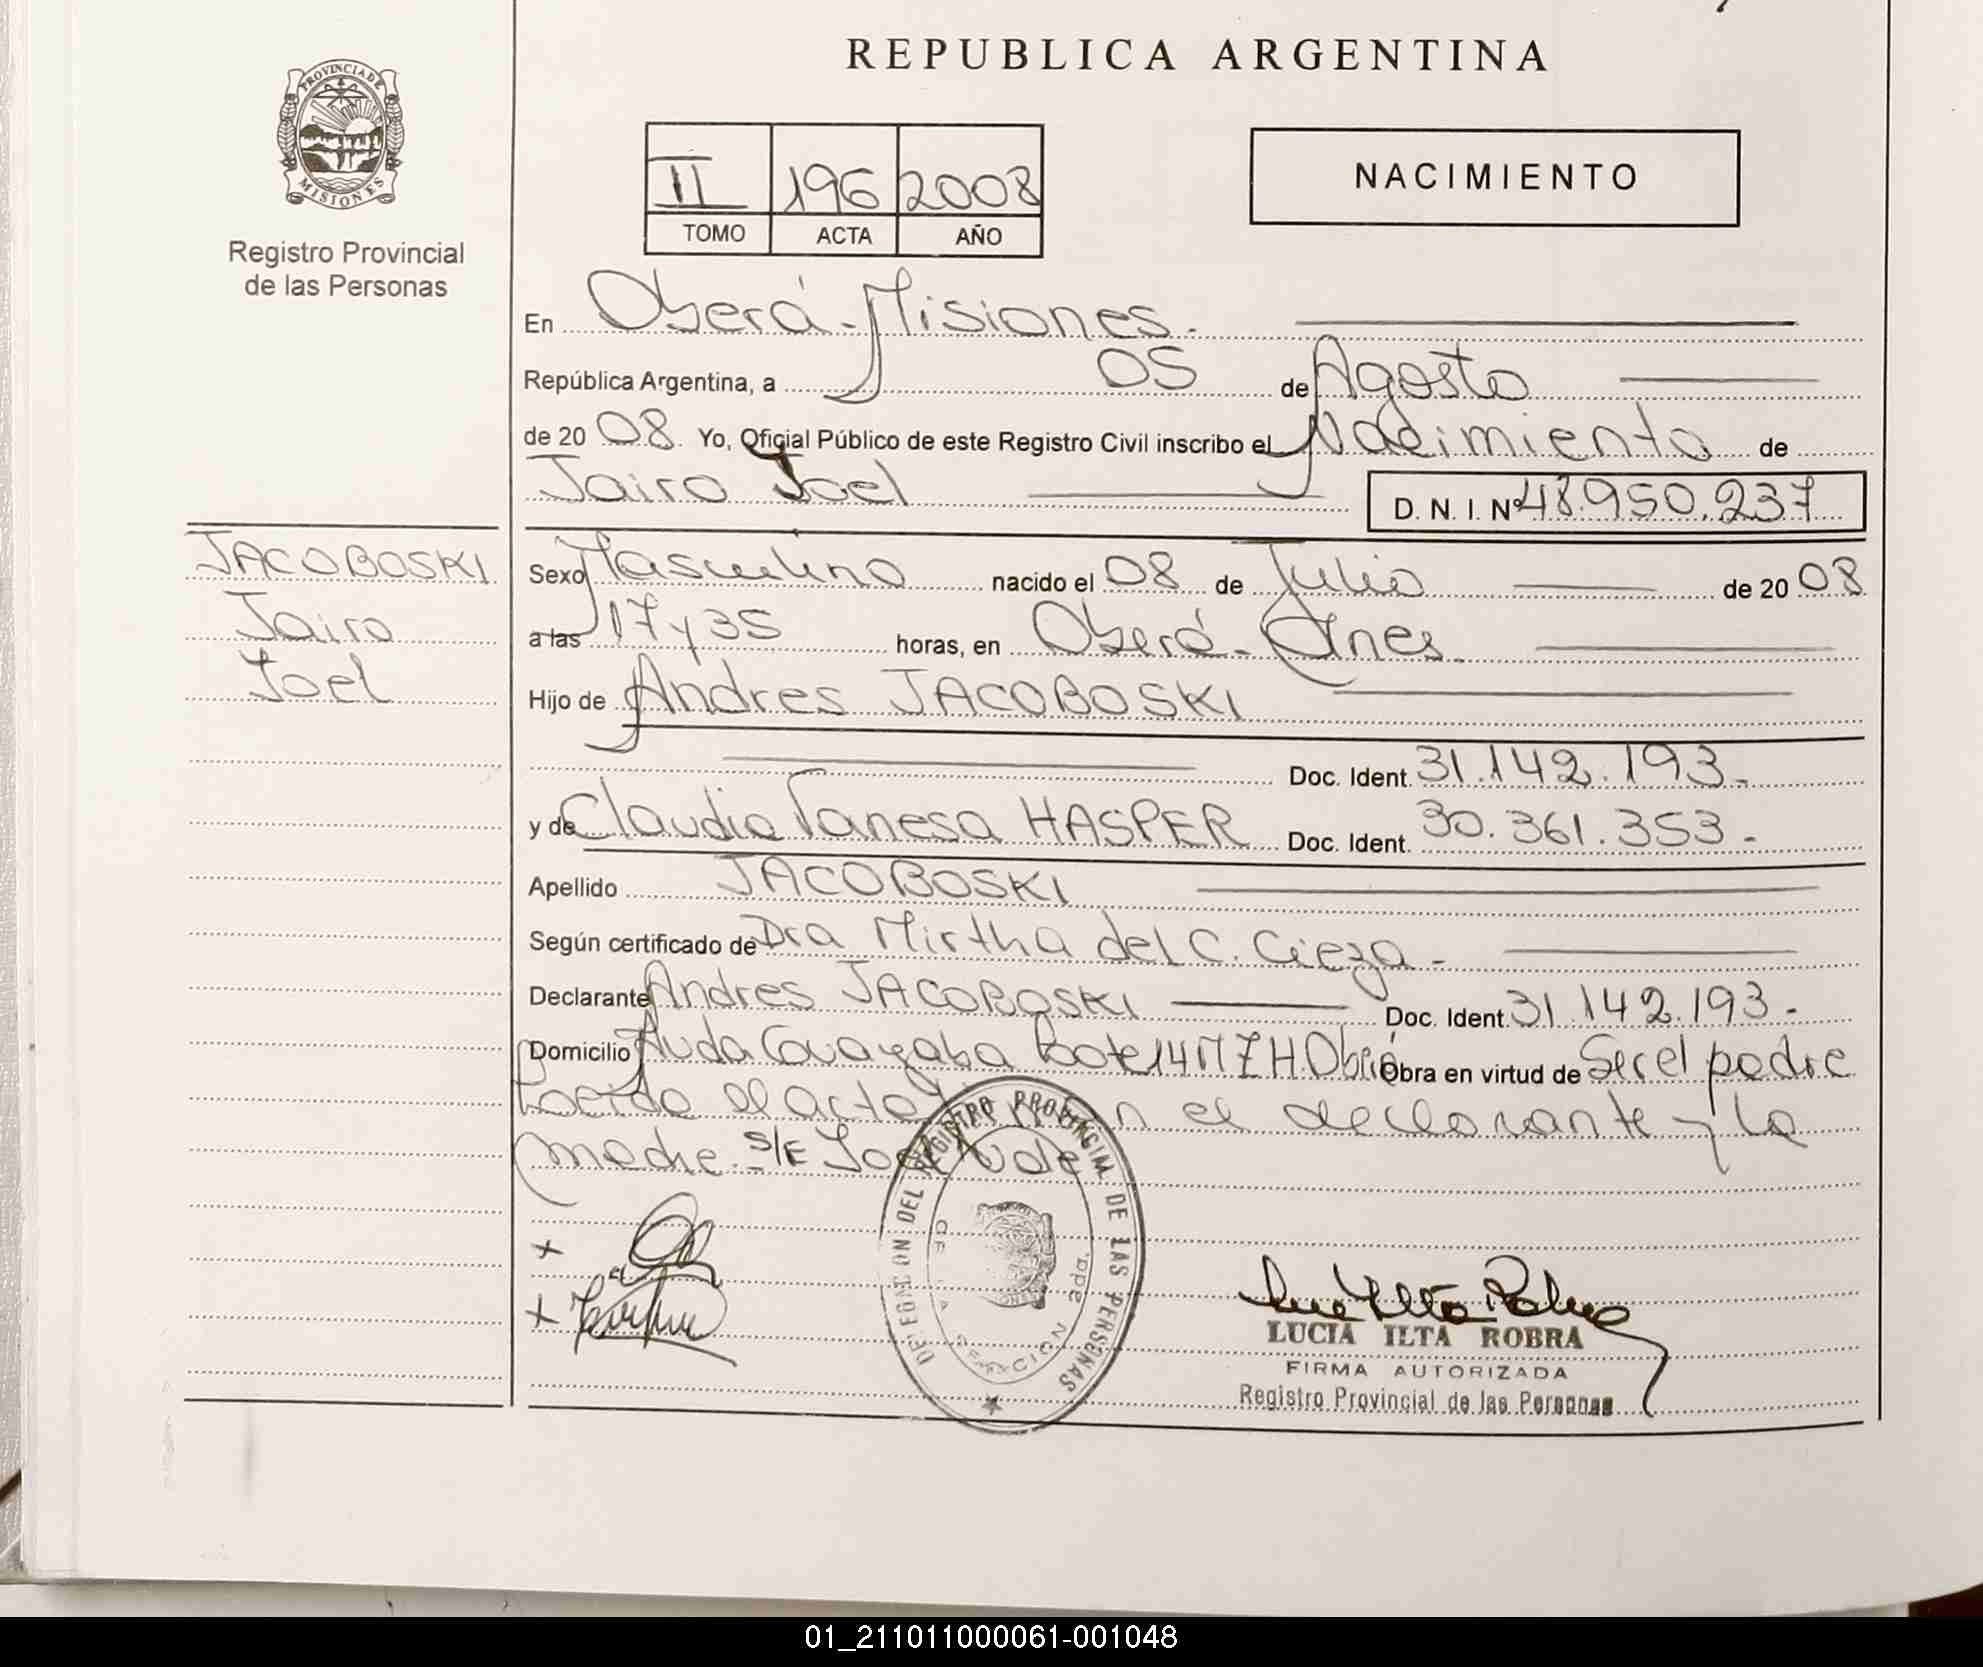 REPUBLICA ARGENTINA
PROVINCIA DE MISIONES
Registro Provincial
de las Personas
II 196 2008
TOMO ACTA AÑO
NACIMIENTO
En Oberá - Misiones.
República Argentina, a 05 de Agosto
de 20 08 Yo, Oficial Público de este Registro Civil inscribo el Nacimiento de
Jairo Joel D. N. I. Nº 48.950.237
JACOBOSKI
Jairo
Joel
Sexo Masculino nacido el 08 de Julio de 20 08
a las 17 y 35 horas, en Oberá - Mnes.
Hijo de Andres JACOBOSKI
Doc. Ident. 31.142.193.-
y de Claudia Vanesa HASPER Doc. Ident. 30.361.353.-
Apellido JACOBOSKI
Según certificado de Dra Mirtha del C. Cieza.-
Declarante Andres JACOBOSKI Doc. Ident. 31.142.193.-
Domicilio Avda Obra en virtud de Ser el padre
el acta el declarante y la
madre. S/E Joel Vale
DELEGACION DEL REGISTRO PROVINCIAL DE LAS PERSONAS
2da.
LUCIA ILTA ROBRA
FIRMA AUTORIZADA
Registro Provincial de las Personas
01_211011000061-001048